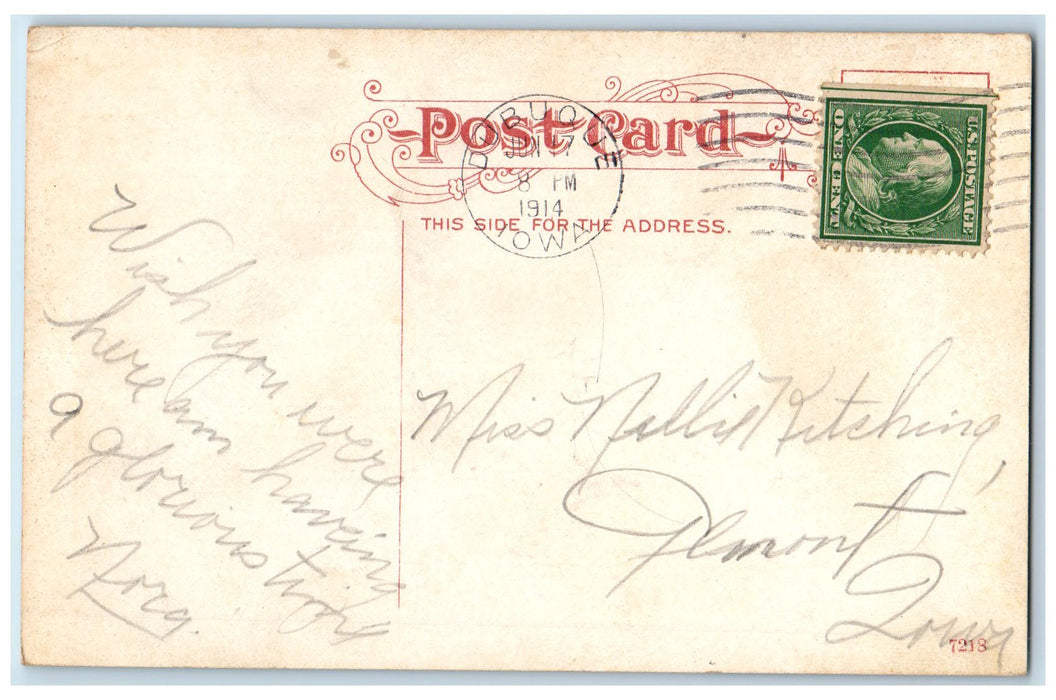 Post Card
THIS SIDE FOR THE ADDRESS.
DUBUQUE
JUN 17
8 PM
1914
IOWA
U.S. POSTAGE
ONE CENT
Wish you were
here am having
a glorious time
Nora.
Miss Nellie Kitching,
Iowa
7213